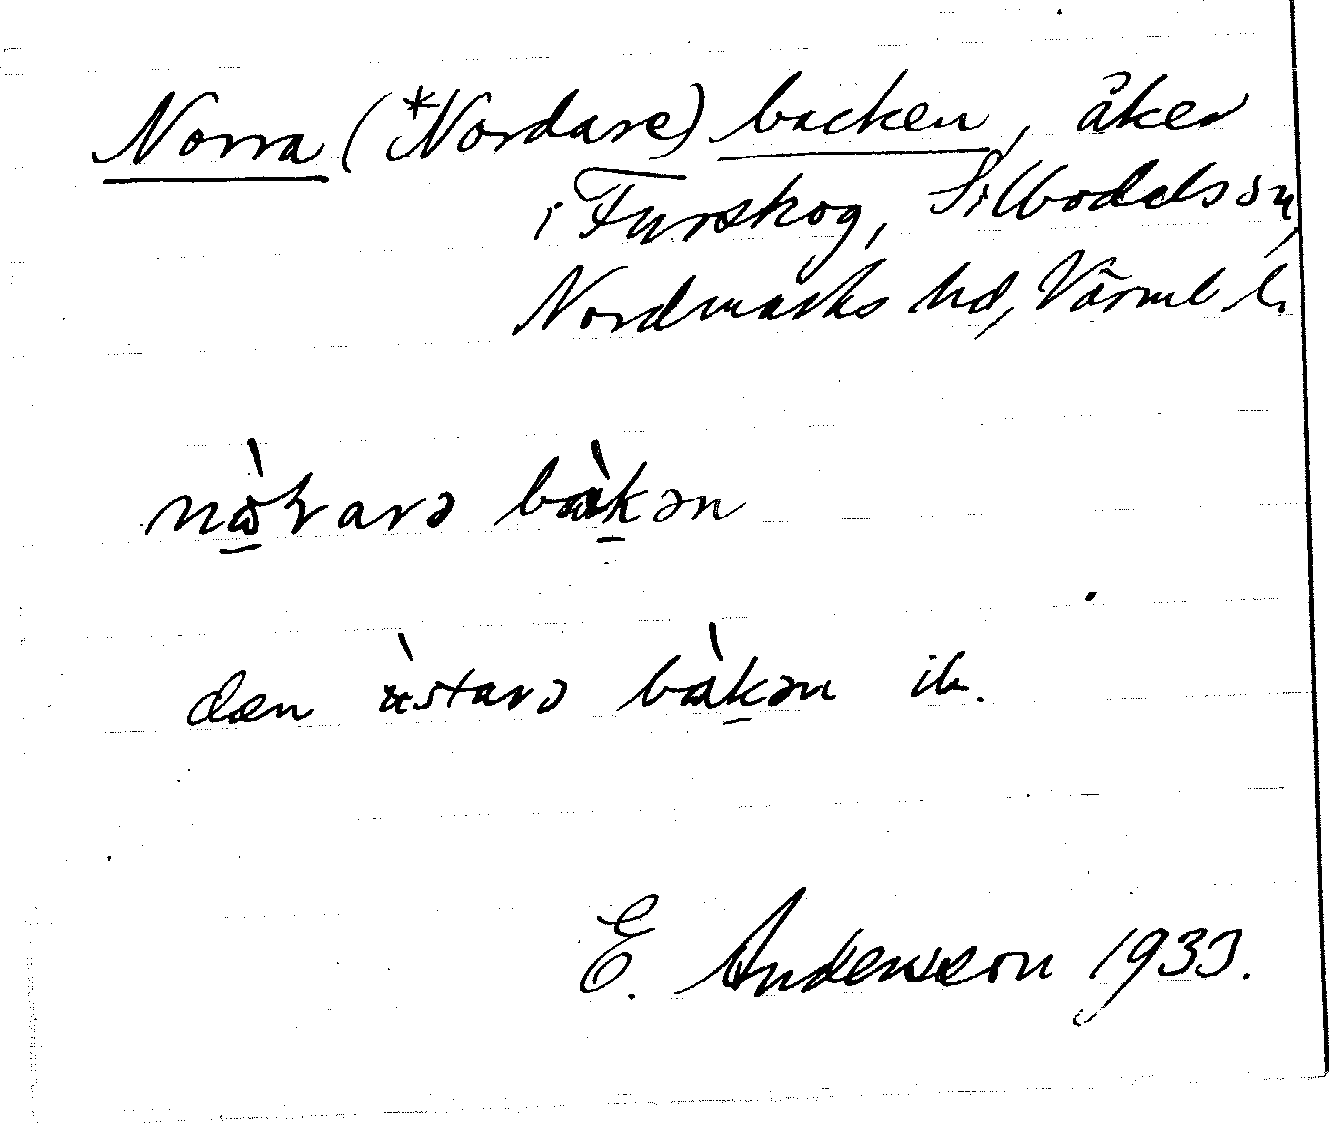 Norra (*Nordare) backen, åker
i Furskog, Silbodals sn,
Nordmarks hd, Värml l.
bàkən
dæn bàkən ib.
E. Andersson 1933.